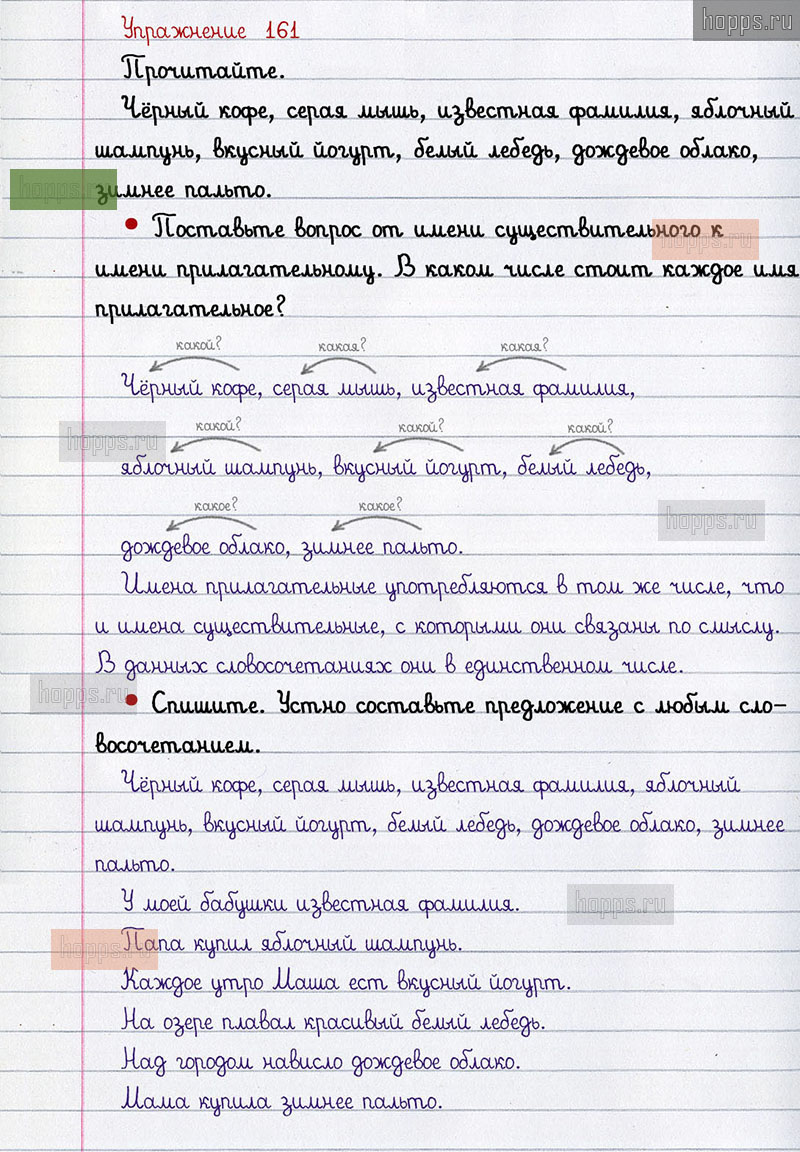 hopps.ru
Упражнение 161
Прочитайте.
Чёрный кофе, серая мышь, известная фамилия, яблочный
шампунь, вкусный йогурт, белый лебедь, дождевое облако,
hopps.ru
зимнее пальто.
• Поставьте вопрос от имени существительного к
hopps.ru
имени прилагательному. В каком числе стоит каждое имя
прилагательное?
какой? какая? какая?
Чёрный кофе, серая мышь, известная фамилия,
какой? какой? какой?
hopps.ru
яблочный шампунь, вкусный йогурт, белый лебедь,
какое? какое?
hopps.ru
дождевое облако, зимнее пальто.
Имена прилагательные употребляются в том же числе, что
и имена существительные, с которыми они связаны по смыслу.
В данных словосочетаниях они в единственном числе.
hopps.ru
• Спишите. Устно составьте предложение с любым сло-
восочетанием.
Чёрный кофе, серая мышь, известная фамилия, яблочный
шампунь, вкусный йогурт, белый лебедь, дождевое облако, зимнее
пальто.
У моей бабушки известная фамилия.
hopps.ru
Папа купил яблочный шампунь.
hopps.ru
Каждое утро Маша ест вкусный йогурт.
На озере плавал красивый белый лебедь.
Над городом нависло дождевое облако.
Мама купила зимнее пальто.